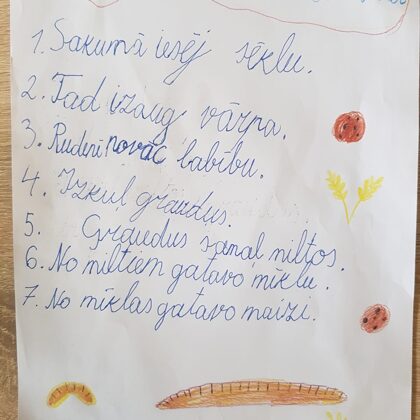 1. Sākumā iesēj sēklu.
2. Tad izaug vārpa.
3. Rudenī novāc labību.
4. Izkuļ graudus.
5. Graudus samaļ miltos.
6. No miltiem gatavo mīklu.
7. No mīklas gatavo maizi.